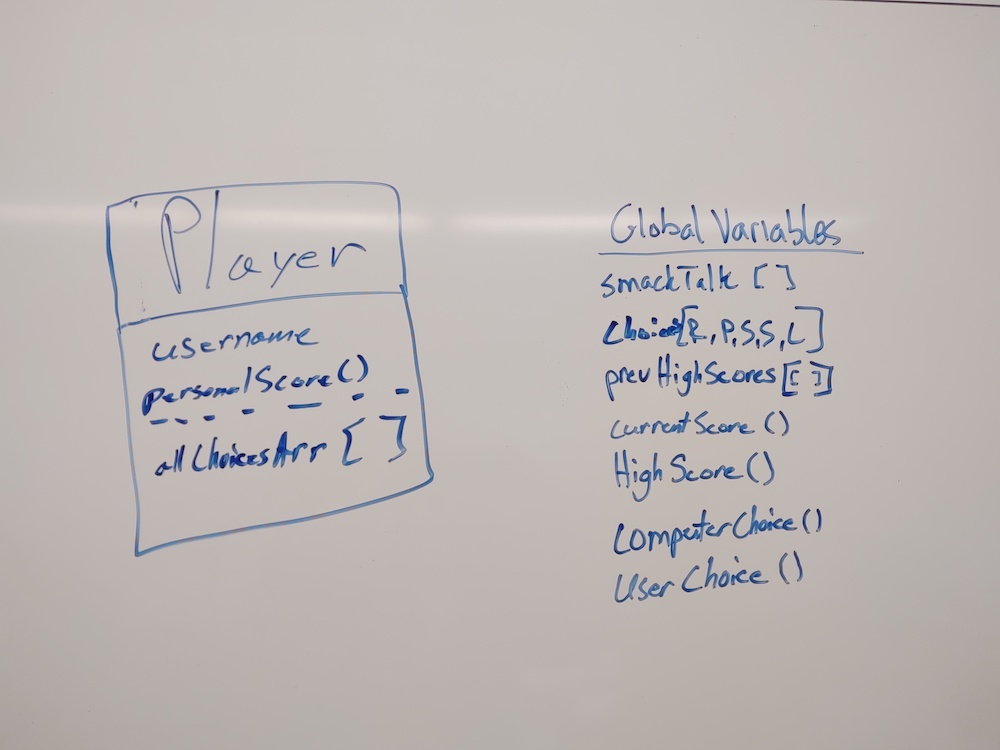 Player
username
personalScore()
allChoicesArr [ ]
Global Variables
smackTalk [ ]
Choices[R, P, S, S, L]
prevHighScores [[ ]]
currentScore ()
High Score ()
ComputerChoice ()
User Choice ()